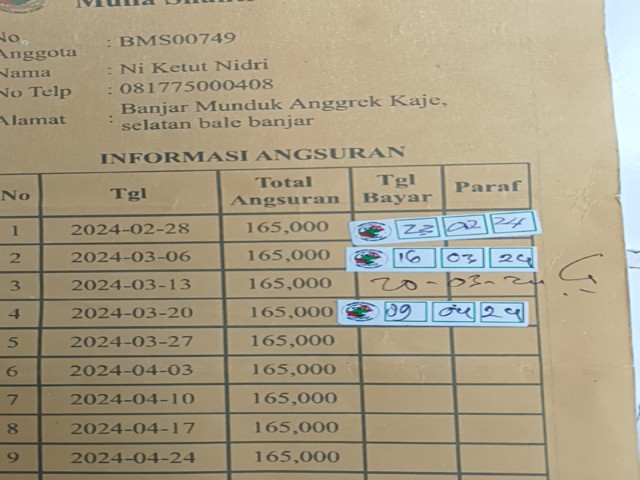 No. Anggota : BMS00749
Nama : Ni Ketut Nidri
No Telp : 081775000408
Alamat : Banjar Munduk Anggrek Kaje,
selatan bale banjar
INFORMASI ANGSURAN
No Tgl Total Angsuran Tgl Bayar Paraf
1 2024-02-28 165,000 23 02 24
2 2024-03-06 165,000 16 03 24
3 2024-03-13 165,000 20-03-24
4 2024-03-20 165,000 09 04 24
5 2024-03-27 165,000
6 2024-04-03 165,000
7 2024-04-10 165,000
8 2024-04-17 165,000
9 2024-04-24 165,000